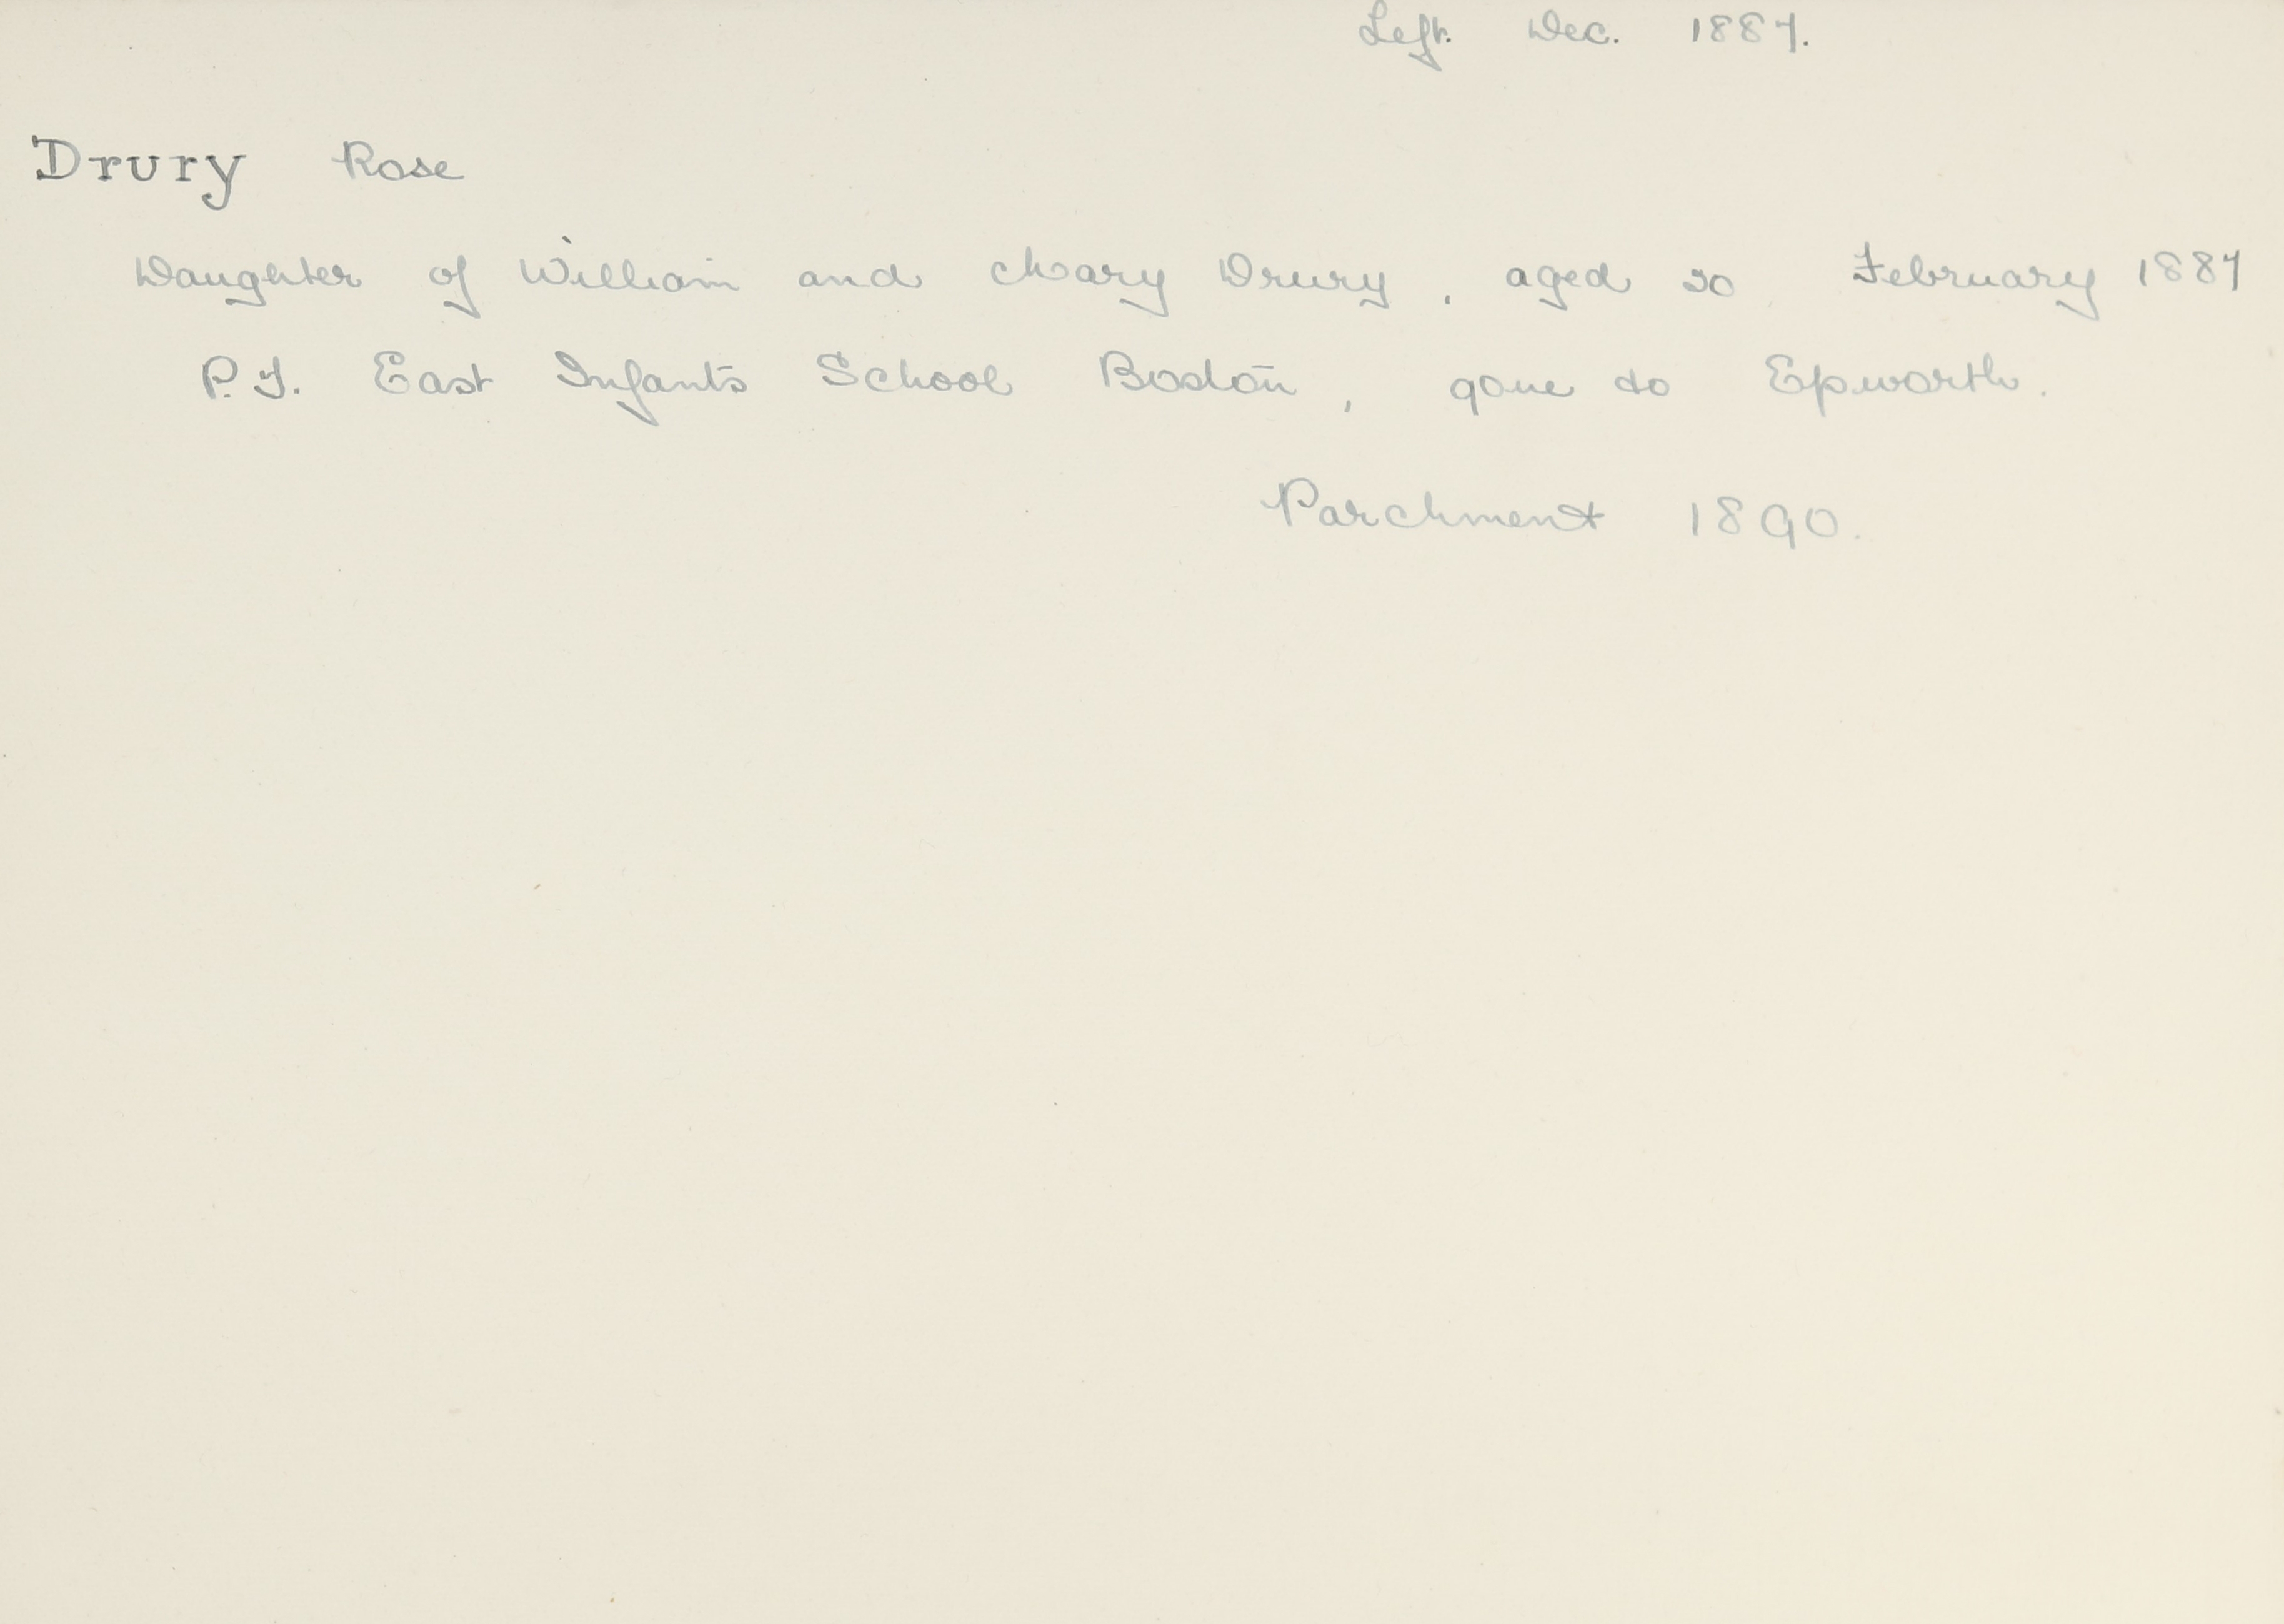 Left. Dec. 1887.
Drury Rose
Daughter of William and Mary Drury, aged 20 February 1887
P.T. East Infants School Boston, gone to Epworth.
Parchment 1890.